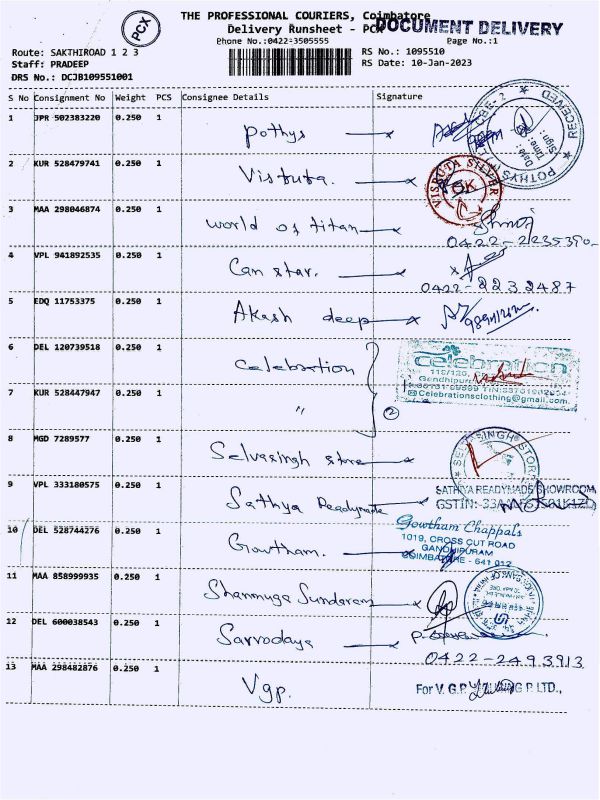 PCX
THE PROFESSIONAL COURIERS, Coimbatore
DOCUMENT DELIVERY
Delivery Runsheet - PCX
Phone No.:0422-3505555
Page No.:1
Route: SAKTHIROAD 1 2 3
RS No.: 1095510
Staff: PRADEEP
RS Date: 10-Jan-2023
DRS No.: DCJB109551001
S No Consignment No Weight PCS Consignee Details Signature
1 JPR 502383220 0.250 1 Pothys
RECEIVED
Date:
Time:
Sign:
POTHYS
2 KUR 528479741 0.250 1 Visbuta.
VISBUTA SILVER
3 MAA 298046874 0.250 1 world of titan
0422-2235390
4 VPL 941892535 0.250 1 Can star.
0422-2232487
5 EDQ 11753375 0.250 1 Akash deep
6 DEL 120739518 0.250 1 Celebration
celebration
Gandhipuram
Celebrationsclothing@gmail.com
7 KUR 528447947 0.250 1 "
2
8 MGD 7289577 0.250 1 Selvasingh store
SELVASINGH STORE
9 VPL 333180575 0.250 1 Sathya Readymade
SATHYA READYMADE SHOWROOM
GSTIN:
10 DEL 528744276 0.250 1 Gowtham.
Gowtham Chappals
1019, CROSS CUT ROAD
GANDHIPURAM
COIMBATORE - 641 012
11 MAA 858999935 0.250 1 Shanmuga Sundaram
12 DEL 600038543 0.250 1 Sarvodaya
0422-2493913
13 MAA 298482876 0.250 1 Vgp.
For V. G.P. G.P. LTD.,